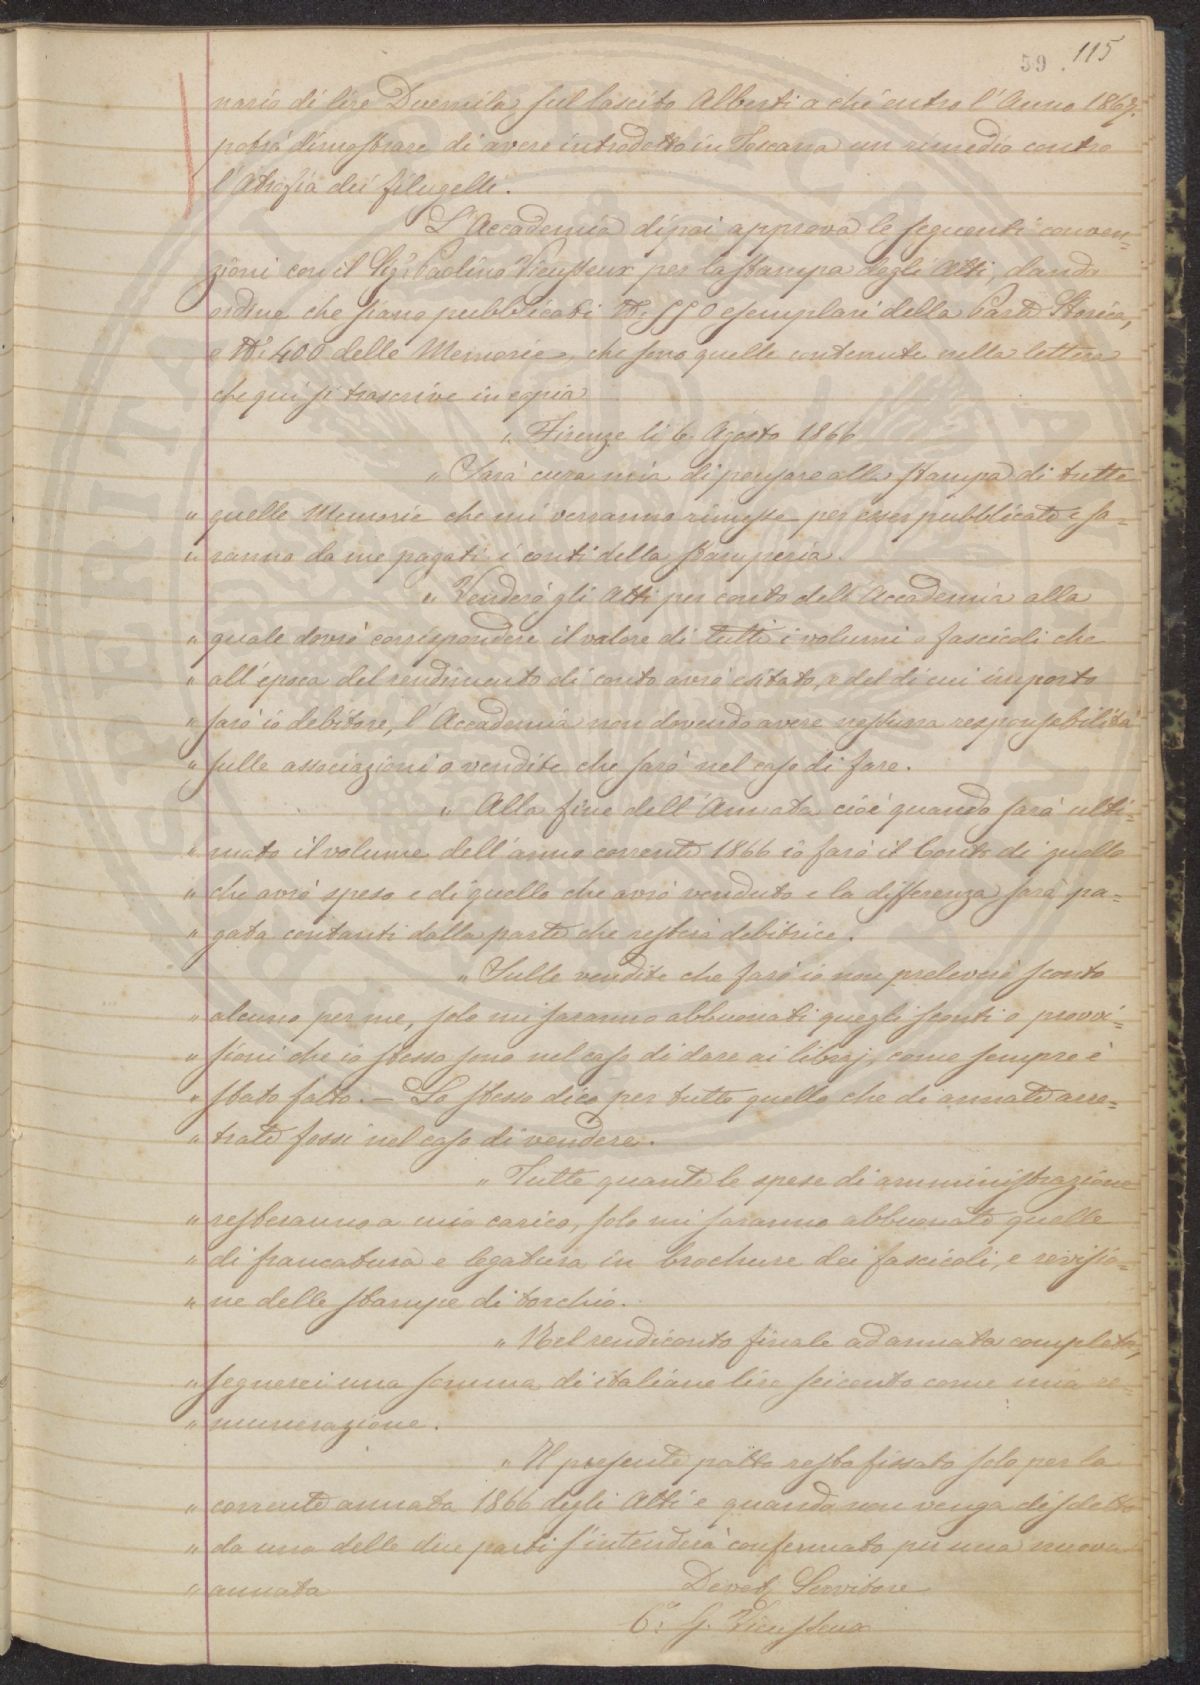 59. 115
nario di lire Duemila sul lascito Alberti a chi entro l'Anno 1867.
potrà dimostrare di avere introdotto in Toscana un rimedio contro
l'Atrofia dei filugelli.
L'Accademia dipoi approva le seguenti conven=
zioni con il Sigr. Paolino Vieusseux per la stampa degli Atti, dando
ordine che siano pubblicati N. 550 esemplari della Parte Storica,
e N. 400 delle Memorie, che sono quelle contenute nella lettera
che qui si trascrive in copia
" Firenze li 6. Agosto 1866
" Sarà cura mia di pensare alla stampa di tutte
" quelle Memorie che mi verranno rimesse per esser pubblicate e sa=
" ranno da me pagati i conti della stamperia.
" Venderò gli Atti per conto dell'Accademia alla
" quale dovrò corrispondere il valore di tutti i volumi o fascicoli che
" all'epoca del rendimento di conto avrò esitato, e del di cui importo
" sarò io debitore, l'Accademia non dovendo avere nessuna responsabilità
" sulle associazioni o vendite che sarò nel caso di fare.
" Alla fine dell'Annata cioè quando sarà ulti=
" mato il volume dell'anno corrente 1866 io farò il Conto di quello
" che avrò speso e di quello che avrò venduto e la differenza sarà pa=
" gata contanti dalla parte che resterà debitrice.
" Sulle vendite che farò io non preleverò sconto
" alcuno per me, solo mi saranno abbuonati quegli sconti o provvi=
" sioni che io stesso sono nel caso di dare ai libraj, come sempre è
" stato fatto. — Lo stesso dico per tutto quello che di annate arre=
" trate fossi nel caso di vendere.
" Tutte quante le spese di amministrazione
" resteranno a mio carico, solo mi saranno abbuonate quelle
" di francatura e legatura in brochure dei fascicoli, e revisio=
" ne delle stampe di torchio.
" Nel rendiconto finale ad annata completa,
" segnerei una somma di italiane lire seicento come mia re=
" munerazione.
" Il presente patto resta fissato solo per la
" corrente annata 1866 degli Atti e quando non venga disdetto
" da una delle due parti s'intenderà confermato per una nuova
" annata
Devot. Servitore
C. G. Vieusseux